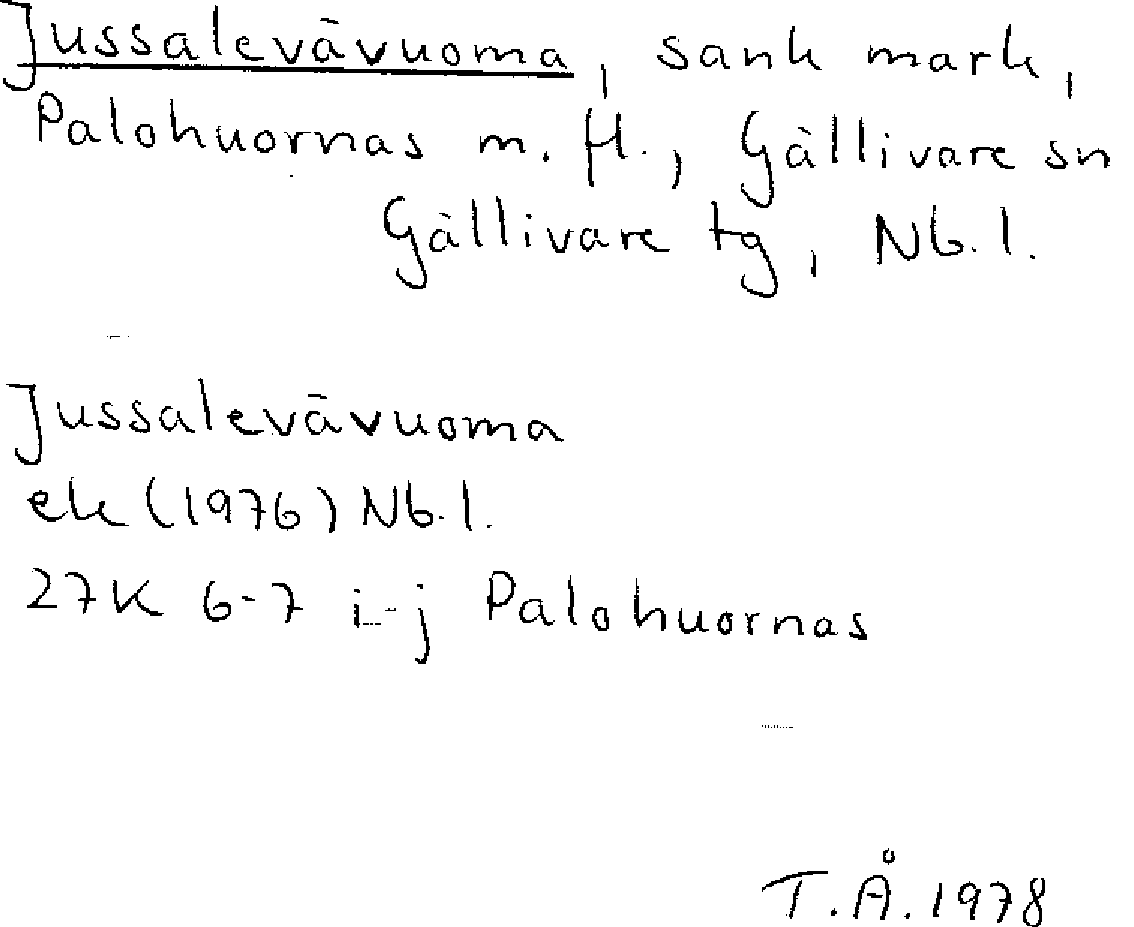 Jussalevävuoma, sank mark,
Palohuornas m. fl., Gällivare sn
Gällivare tg, Nb. l.
Jussalevävuoma
ek (1976) Nb. l.
27K 6-7 i-j Palohuornas
T. Å. 1978